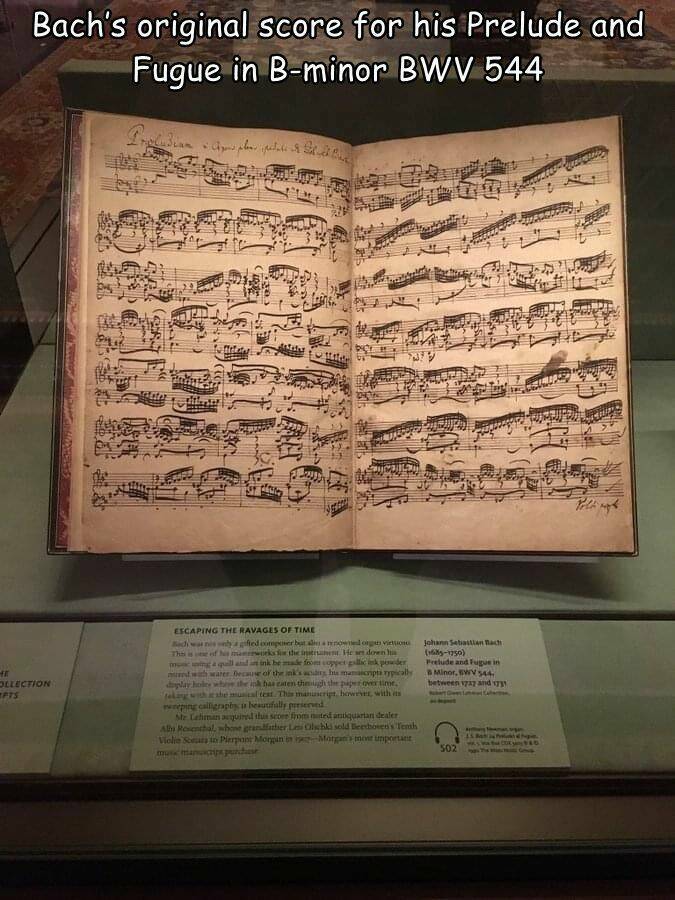 Bach's original score for his Prelude and
Fugue in B-minor BWV 544
ESCAPING THE RAVAGES OF TIME
Bach was not only a gifted composer but also a renowned organ virtuoso.
This is one of his masterworks for the instrument. He set down his
music using a quill and an ink he made from copper-gallic ink powder
mixed with water. Because of the ink's acidity, his manuscripts typically
display holes where the ink has eaten through the paper over time,
taking with it the musical text. This manuscript, however, with its
sweeping calligraphy, is beautifully preserved.
Mr. Lehman acquired this score from noted antiquarian dealer
Albi Rosenthal, whose grandfather Leo Olschki sold Beethoven's Tenth
Violin Sonata to Pierpont Morgan in 1907—Morgan's most important
music manuscript purchase.
Johann Sebastian Bach
(1685–1750)
Prelude and Fugue in
B Minor, BWV 544,
between 1727 and 1731
Robert Owen Lehman Collection,
on deposit
502
Anthony Newman, organ
HE
OLLECTION
IPTS